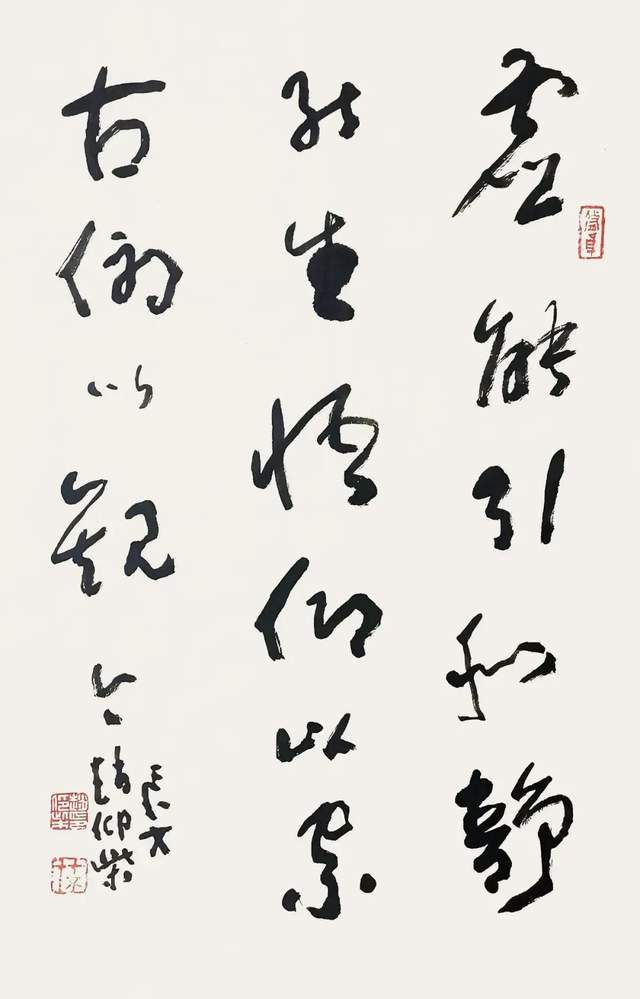 虚能引和静
能生悟仰以察
古俯以观今
赵仰柴